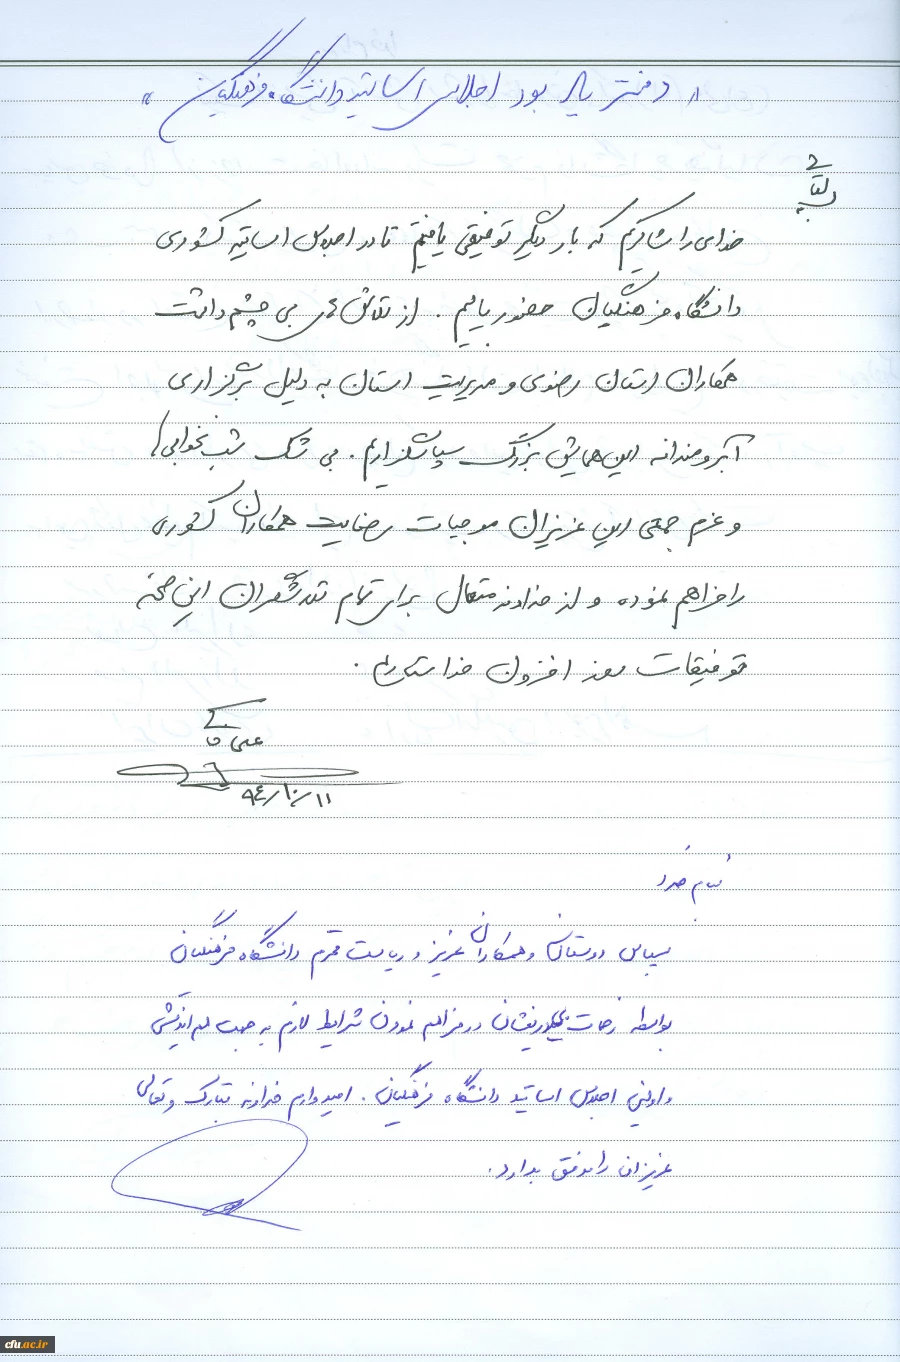 « دفتر یاد بود اجلاس اساتید دانشگاه فرهنگیان »
خدای را شاکریم که بار دیگر توفیقی یافتیم تا در اجلاس اساتید کشوری
دانشگاه فرهنگیان حضور یابیم . از تلاش های بی چشم داشت
همکاران استان رضوی و مدیریت استان به دلیل برگزاری
آبرومندانه این همایش بزرگ سپاسگزاریم . بی شک شب نخوابی
و عزم جمعی این عزیزان موجبات رضایت همکاران کشوری
را فراهم نموده و از خداوند متعال برای تمام این
توفیقات روز افزون خواستاریم .
علی
۹۴/۱۰/۱۱
بنام خدا
سپاس دوستان و همکاران عزیز و ریاست محترم دانشگاه فرهنگیان
بواسطه زحمات در فراهم نمودن شرایط لازم به جهت هم اندیشی
و اولین اجلاس اساتید دانشگاه فرهنگیان . امیدوارم خداوند تبارک و تعالی
عزیزان را موفق بدارد .
cfu.ac.ir